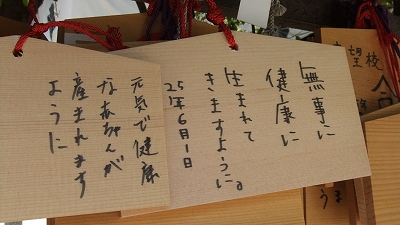 無事に
健康に
生まれて
きますように。
25年6月1日
元気で健康
なあちゃんが
産まれます
ように
望校
合